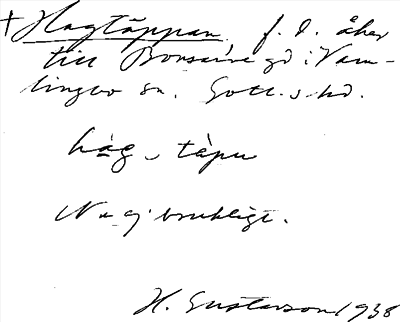 † Hagtäppan, f. d. åker
till Bonsarve gd i Vam-
lingbo sn. Gotl. s. hd.
hág - tàpu
Nu ej brukligt.
H. Gustavson 1938